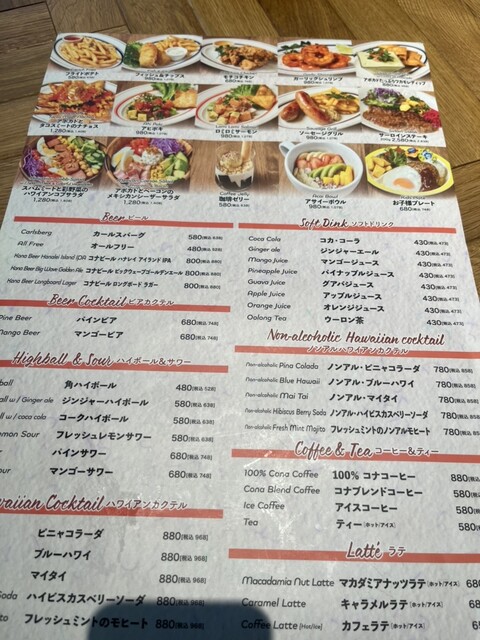 フライドポテト
フィッシュ&チップス
モチコチキン
ガーリックシュリンプ
580
980
980
アボカドと
タコスミートのナチョス
1,280
アヒポキ
980
ロミロミサーモン
ソーセージグリル
サーロインステーキ
スパムミートと彩野菜の
ハワイアンコブサラダ
1,280
アボカドとベーコンの
メキシカンシーザーサラダ
1,280
Coffee Jelly
珈琲ゼリー
580
Acai Bowl
アサイーボウル
980
お子様プレート
680
Beer ビール
Carlsberg カールスバーグ 580
All Free オールフリー 480
Kona Beer Hanalei Island IPA コナビール ハナレイ アイランド IPA 800
Kona Beer Big Wave Golden Ale コナビール ビックウェーブゴールデンエール 800
Kona Beer Longboard Lager コナビール ロングボード ラガー 800
Beer Cocktail ビアカクテル
Pine Beer パインビア 680[税込 748]
Mango Beer マンゴービア 680[税込 748]
Highball & Sour ハイボール&サワー
ball 角ハイボール 480[税込 528]
all w/ Ginger ale ジンジャーハイボール 580[税込 638]
all w/ coca cola コークハイボール 580[税込 638]
mon Sour フレッシュレモンサワー 580[税込 638]
ur パインサワー 680[税込 748]
our マンゴーサワー 680[税込 748]
waiian Cocktail ハワイアンカクテル
ピニャコラーダ 880[税込 968]
ブルーハワイ 880[税込 968]
マイタイ 880[税込 968]
Soda ハイビスカスベリーソーダ 880[税込 968]
to フレッシュミントのモヒート 880[税込 968]
Soft Dink ソフトドリンク
Coca Cola コカ・コーラ 430[税込 473]
Ginger ale ジンジャーエール 430[税込 473]
Mango Juice マンゴージュース 430[税込 473]
Pineapple Juice パイナップルジュース 430[税込 473]
Guava Juice グアバジュース 430[税込 473]
Apple Juice アップルジュース 430[税込 473]
Orange Juice オレンジジュース 430[税込 473]
Oolong Tea ウーロン茶 430[税込 473]
Non-alcoholic Hawaiian cocktail
ノンアルハワイアンカクテル
Non-alcoholic Pina Colada ノンアル・ピニャコラーダ 780[税込 858]
Non-alcoholic Blue Hawaii ノンアル・ブルーハワイ 780[税込 858]
Non-alcoholic Mai Tai ノンアル・マイタイ 780[税込 858]
Non-alcoholic Hibiscus Berry Soda ノンアル・ハイビスカスベリーソーダ 780[税込 858]
Non-alcoholic Fresh Mint Mojito フレッシュミントのノンアルモヒート 780[税込 858]
Coffee & Tea コーヒー&ティー
100% Cona Coffee 100% コナコーヒー 880
Cona Blend Coffee コナブレンドコーヒー 580
Ice Coffee アイスコーヒー 580
Tea ティー[ホット/アイス] 580
Latté ラテ
Macadamia Nut Latte マカダミアナッツラテ[ホット/アイス] 68
Caramel Latte キャラメルラテ[ホット/アイス] 6
Coffee Latte [Hot/Ice] カフェラテ[ホット/アイス]